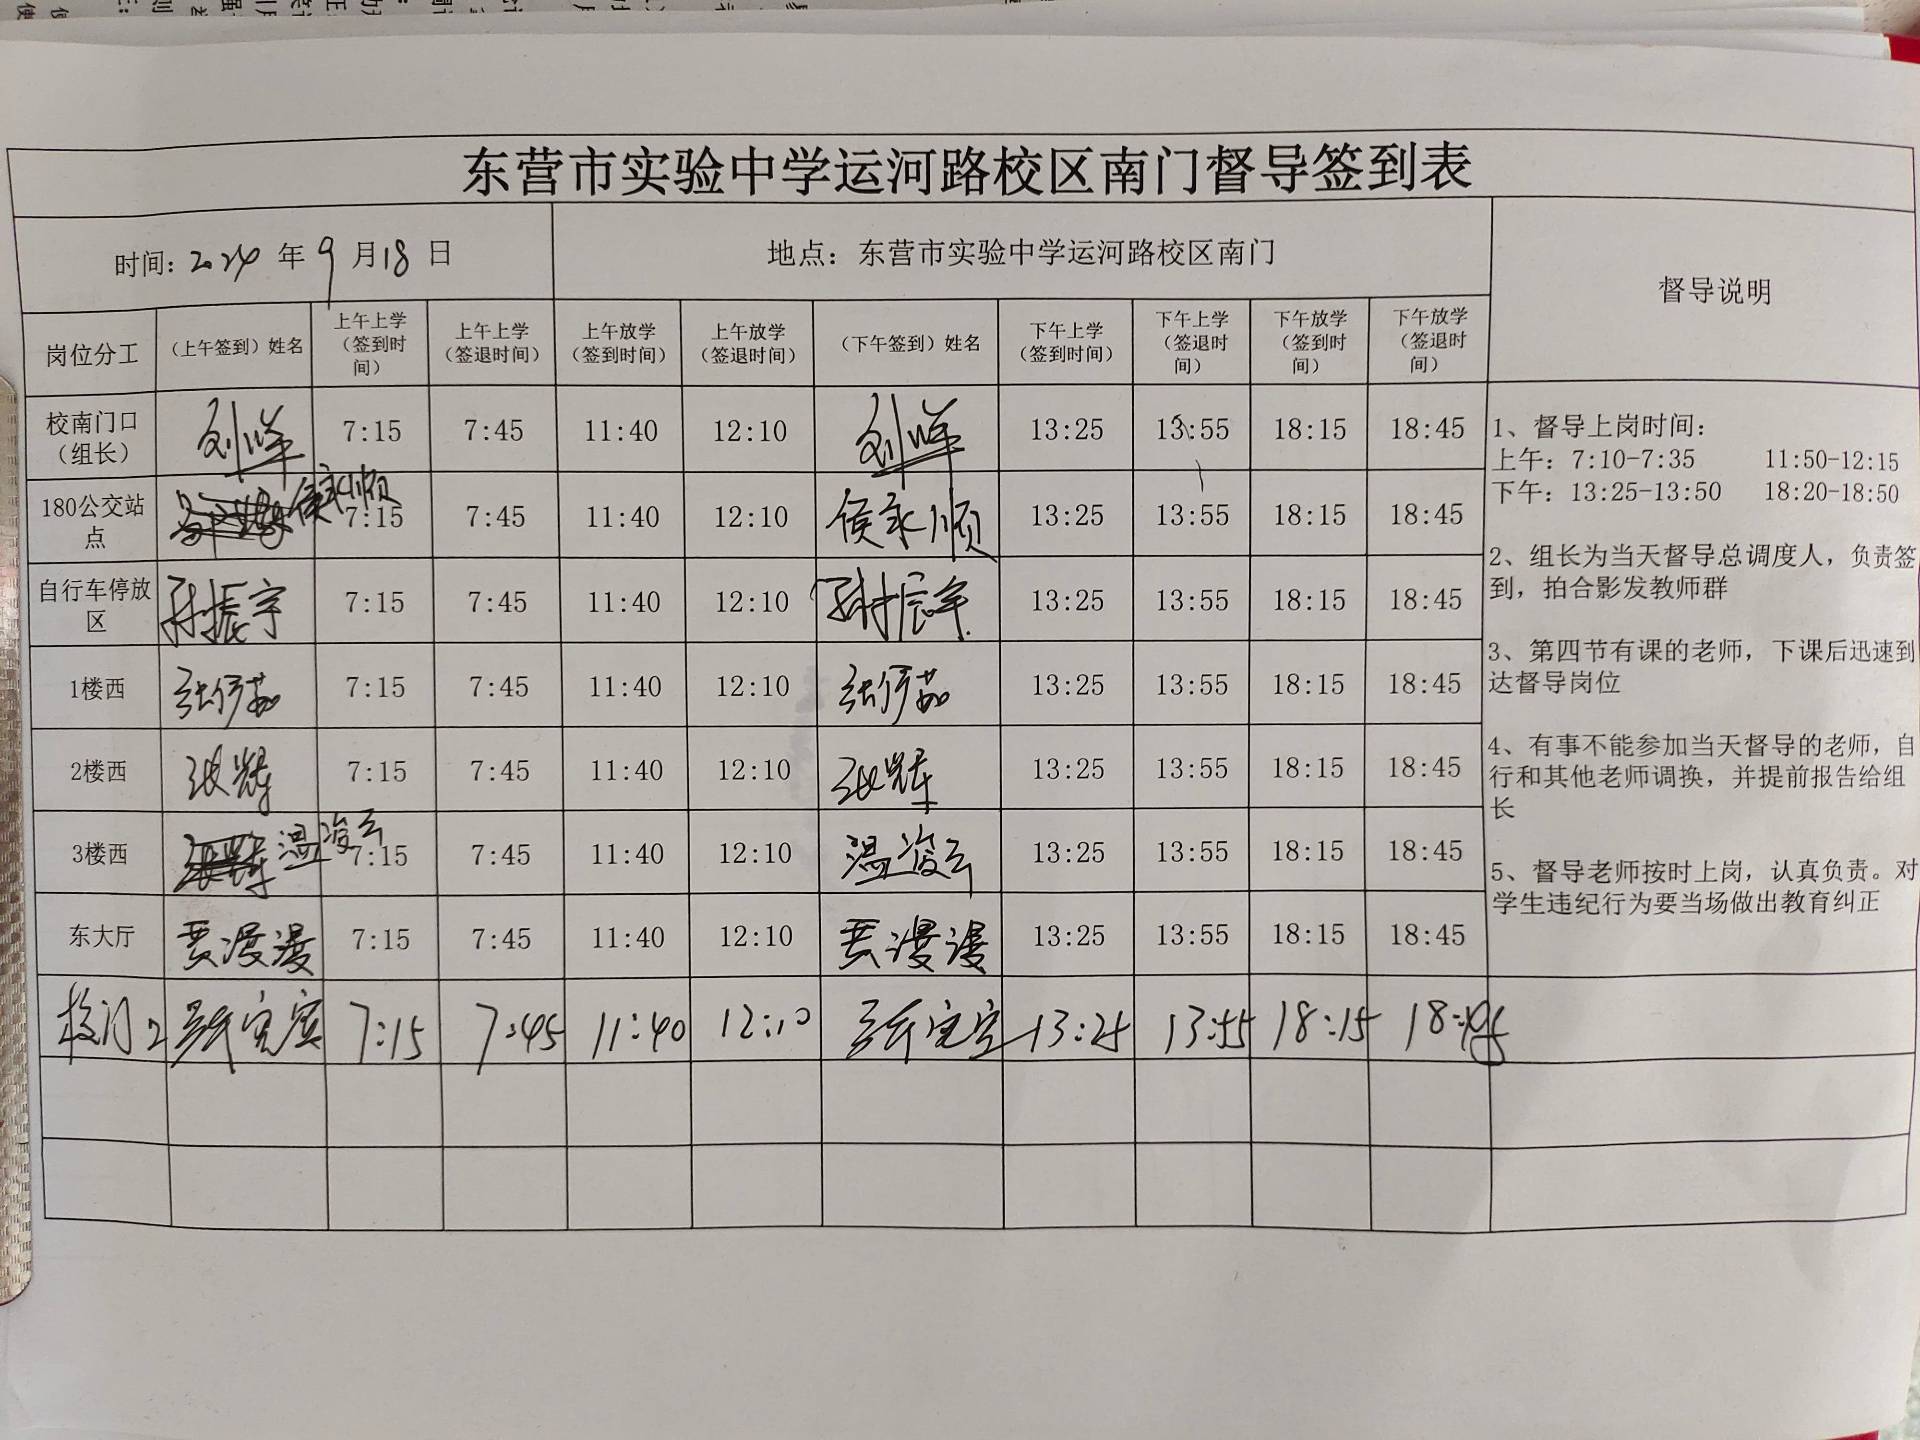 东营市实验中学运河路校区南门督导签到表
时间：2024 年 9 月 18 日 地点：东营市实验中学运河路校区南门 督导说明
岗位分工 （上午签到）姓名 上午上学（签到时间） 上午上学（签退时间） 上午放学（签到时间） 上午放学（签退时间） （下午签到）姓名 下午上学（签到时间） 下午上学（签退时间） 下午放学（签到时间） 下午放学（签退时间）
校南门口（组长） 刘峰 7:15 7:45 11:40 12:10 刘峰 13:25 13:55 18:15 18:45
180公交站点 侯永顺 7:15 7:45 11:40 12:10 侯永顺 13:25 13:55 18:15 18:45
自行车停放区 7:15 7:45 11:40 12:10 13:25 13:55 18:15 18:45
1楼西 7:15 7:45 11:40 12:10 13:25 13:55 18:15 18:45
2楼西 张辉 7:15 7:45 11:40 12:10 张辉 13:25 13:55 18:15 18:45
3楼西 温浚云 7:15 7:45 11:40 12:10 温浚云 13:25 13:55 18:15 18:45
东大厅 贾漫漫 7:15 7:45 11:40 12:10 贾漫漫 13:25 13:55 18:15 18:45
校门2 7:15 7:45 11:40 12:10 13:25 13:55 18:15 18:45
1、督导上岗时间：
上午：7:10-7:35 11:50-12:15
下午：13:25-13:50 18:20-18:50
2、组长为当天督导总调度人，负责签
到，拍合影发教师群
3、第四节有课的老师，下课后迅速到
达督导岗位
4、有事不能参加当天督导的老师，自
行和其他老师调换，并提前报告给组
长
5、督导老师按时上岗，认真负责。对
学生违纪行为要当场做出教育纠正